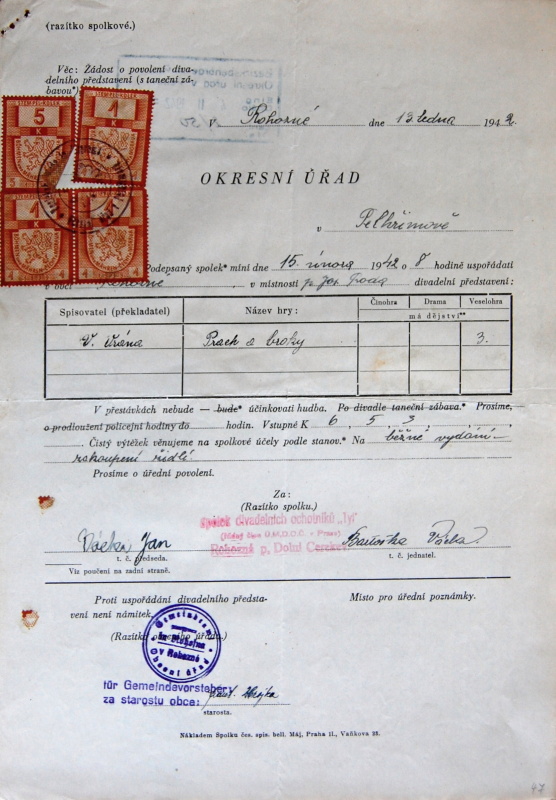 (razítko spolkové.)
Věc: Žádost o povolení diva-
delního představení (s taneční zá-
bavou*)
V Rohozné dne 13. ledna 1942
5
K
1
K
1
K
OKRESNÍ ÚŘAD
v Pelhřimově
Podepsaný spolek* míní dne 15. února 1942 o 8 hodině uspořádati
v obci Rohozné, v místnosti p. Jos. divadelní představení:
Spisovatel (překladatel) Název hry: Činohra Drama Veselohra
má dějství**
V. Vrána Prach a broky 3.
V přestávkách nebude — bude* účinkovati hudba. Po divadle taneční zábava.* Prosíme,
o prodloužení policejní hodiny do hodin. Vstupné K 6, 5, 3,
Čistý výtěžek věnujeme na spolkové účely podle stanov.* Na běžné vydání-
zakoupení židlí.
Prosíme o úřední povolení.
Za:
(Razítko spolku.)
Spolek divadelních ochotníků „Tyl"
(řádný člen Ú.M.D.O.Č. v Praze)
Rohozná p. Dolní Cerekev
Jan
t. č. předseda.
t. č. jednatel.
Viz poučení na zadní straně.
Proti uspořádání divadelního představ-
vení není námitek.
Místo pro úřední poznámky.
(Razítko obecního úřadu.)
Gemeindeamt
in Rohozna
v Rohozné
Obecní úřad
für Gemeindevorsteher:
za starostu obce:
starosta.
Nákladem Spolku čes. spis. bell. Máj, Praha II., Vaňkova 25.
47